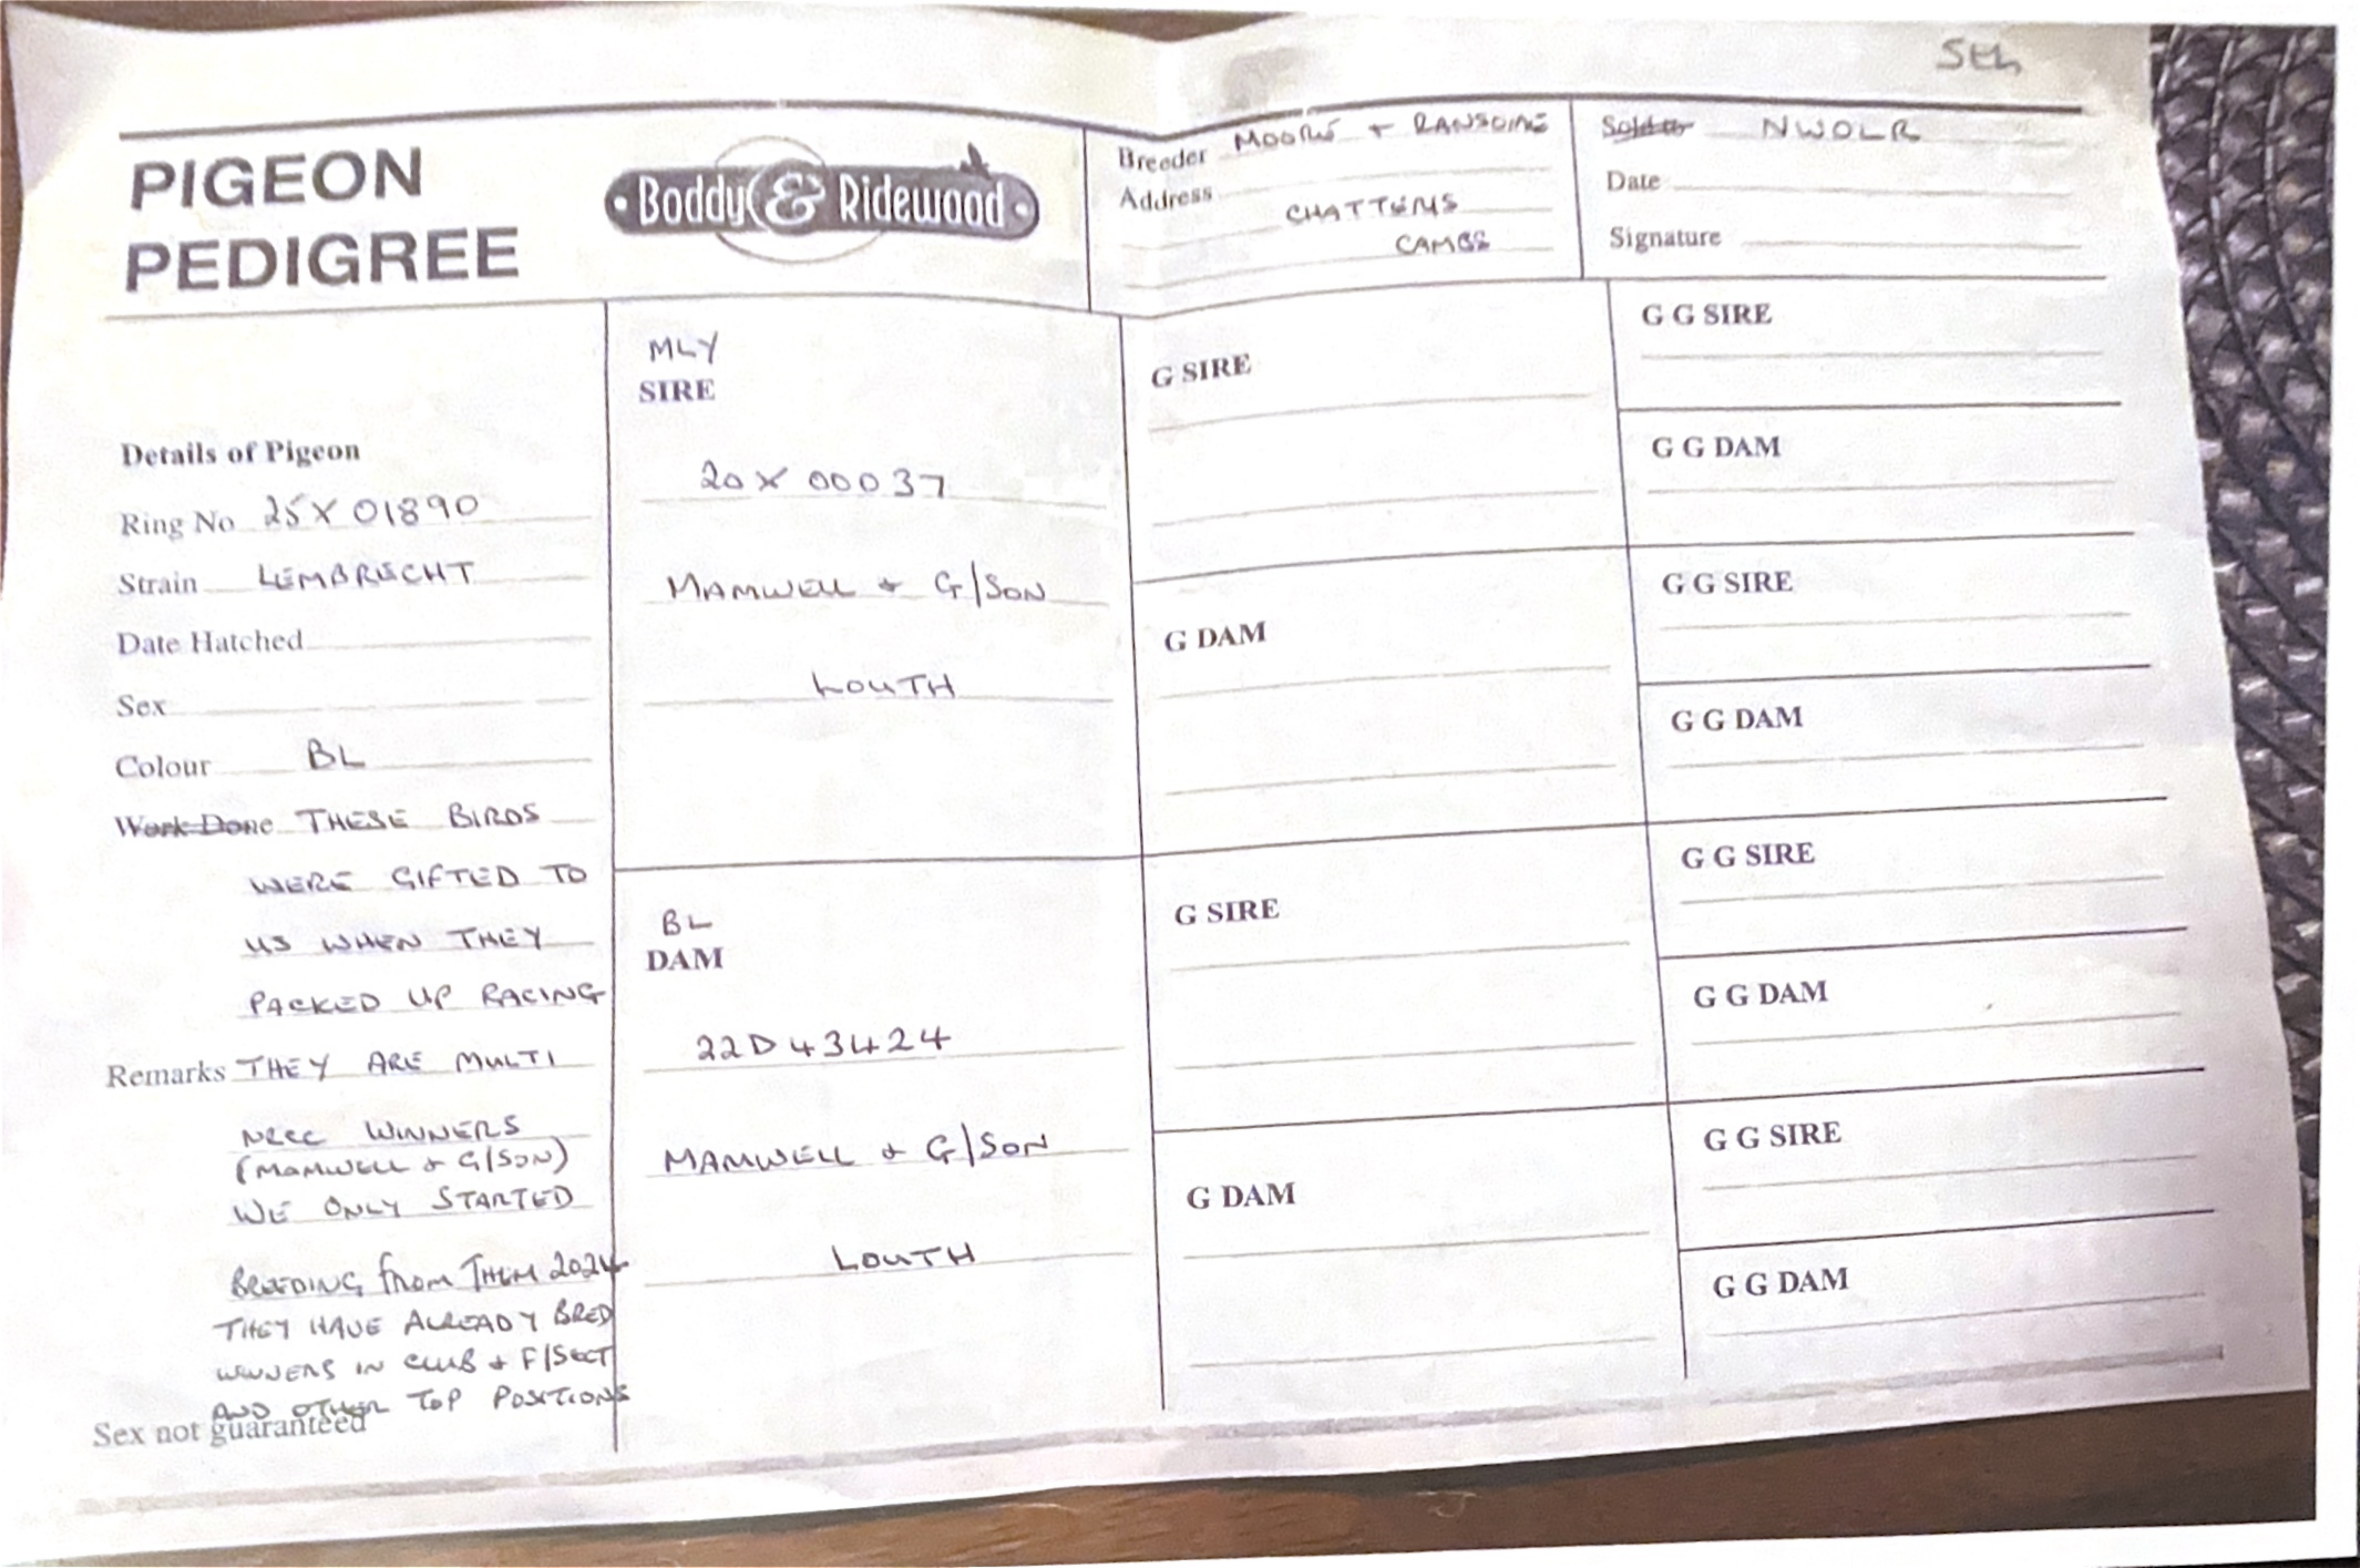 5th
PIGEON
PEDIGREE
Boddy & Ridewood
Breeder MOORE + RANSOME
Address
CHATTERIS
CAMBS
Sold to NWOLR
Date
Signature
Details of Pigeon
Ring No 25X01890
Strain LEMBRECHT
Date Hatched
Sex
Colour BL
Work Done THESE BIRDS
WERE GIFTED TO
US WHEN THEY
PACKED UP RACING
Remarks THEY ARE MULTI
NRCC WINNERS
(MAMWELL + G/SON)
WE ONLY STARTED
BREEDING FROM THEM 2024
THEY HAVE ALREADY BRED
WINNERS IN CLUB + F/SECT
AND OTHER TOP POSITIONS
Sex not guaranteed
MLY
SIRE
20X00037
MAMWELL + G/SON
LOUTH
BL
DAM
22D43424
MAMWELL + G/SON
LOUTH
G SIRE
G DAM
G SIRE
G DAM
G G SIRE
G G DAM
G G SIRE
G G DAM
G G SIRE
G G DAM
G G SIRE
G G DAM